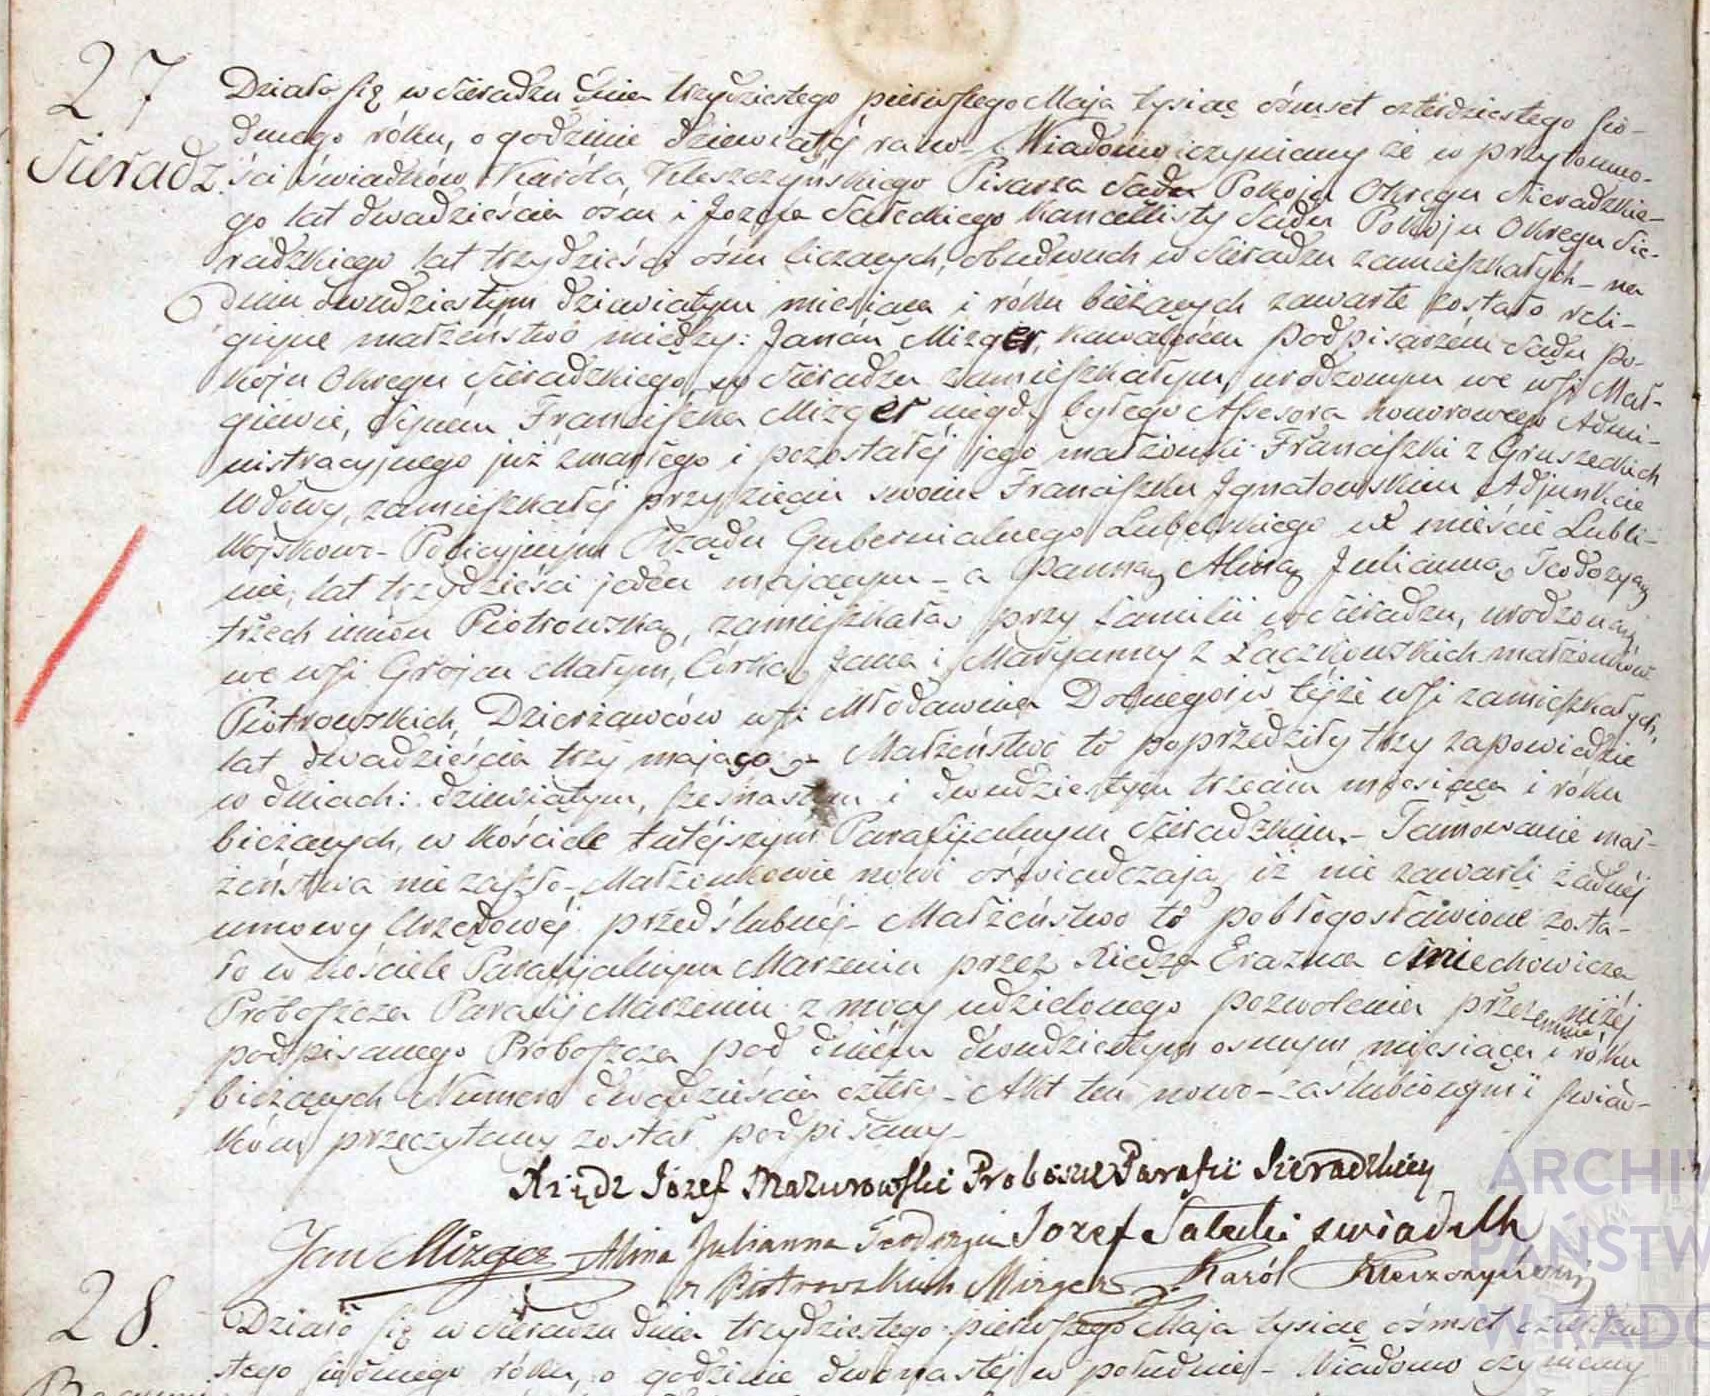 27
Sieradz.
Działo się w Sieradzu dnia trzydziestego pierwszego Maja tysiąc ośmset czterdziestego sió-
dmego róku, o godzinie dziewiątéj rano - Wiadomo czyniemy że w przytomno-
ści świadków Karóla Kleszczyńskiego Pisarza Sądu Pokoju Okręgu Sieradzkie-
go lat dwadzieścia óśm i Jozefa Sałeckiego Kancellisty Sądu Pokoju Okręgu Sie-
radzkiego lat trzydzieści óśm liczących, obudwuch w Sieradzu zamieszkałych - na
dniu dwudziestym dziewiątym miesiąca i róku bieżących zawarte zostało reli-
gijne małżeństwó między: Janém Mizger, Kawalerem Podpisarzém Sądu Po-
koju Okręgu Sieradzkiego, w Sieradzu zamieszkałym, urodzonym we wsi Mał-
giewie, Synem Franciszka Mizger niegdy byłego Assesora honorowego Admi-
nistracyjnego już zmarłego i pozostałéj jego małżonki Franciszki z Gruszeckich
Wdowy, zamieszkałéj przy zięciu swoim Franciszku Ignatowskim Adjunkcie
Wojskowo-Policyjnym Rządu Gubernialnego Lubelskiego w mieście Lubli-
nie, lat trzydzieści jeden mającym - a Panną Aliną Julianną Teodozyą
trzech imion Piotrowską, zamieszkałą przy familii w Sieradzu, urodzoną
we wsi Grójcu Małym, Córką Jana i Maryanny z Łączkowskich małżonków
Piotrowskich, Dzierżawców wsi Młodawina Dolnego w tejże wsi zamieszkałych,
lat dwadzieścia trzy mającą - Małżeństwo tó poprzedziły trzy zapowiedzie
w dniach: dziewiątym, szesnastym i dwudziestym trzecim miesiąca i róku
bieżących, w Kościele tutéjszym Parafijalnym Sieradzkim. - Tamowanie mał-
żeństwa nie zaszło - Małżonkowie nowi oświadczają iż nie zawarli żadnéj
umowy Urzędowéj przedślubnéj - Małżeństwo tó pobłogosławione zosta-
ło w Kościele Parafijalnym Marzenin przez Xiedza Erazma Smiechowicza
Proboszcza Parafij Marzenin z mocy udzielonego pozwolenia przezemnie niżéj
podpisanego Proboszcza pod dniem dwudziestym osmym miesiąca i róku
bieżących Numero dwadzieścia cztery - Akt ten nowo-zaślubionym i świad-
kom przeczytany został podpisany -
Xiądz Józef Mazurowski Proboszcz Parafii Sieradzkiey
Jan Mizger Alina Julianna Teodozyia Jozef Sałecki swiadek
z Piotrowskich Mizger Karól Kleszczyński
28.
Działo się w Sieradzu dnia trzydziestego pierwszego Maja tysiąc ośmset czterdzie-
stego siódmego róku, o godzinie dwónastéj w południe - Wiadomo czyniemy
ARCHIW
PAŃSTW
W RADO